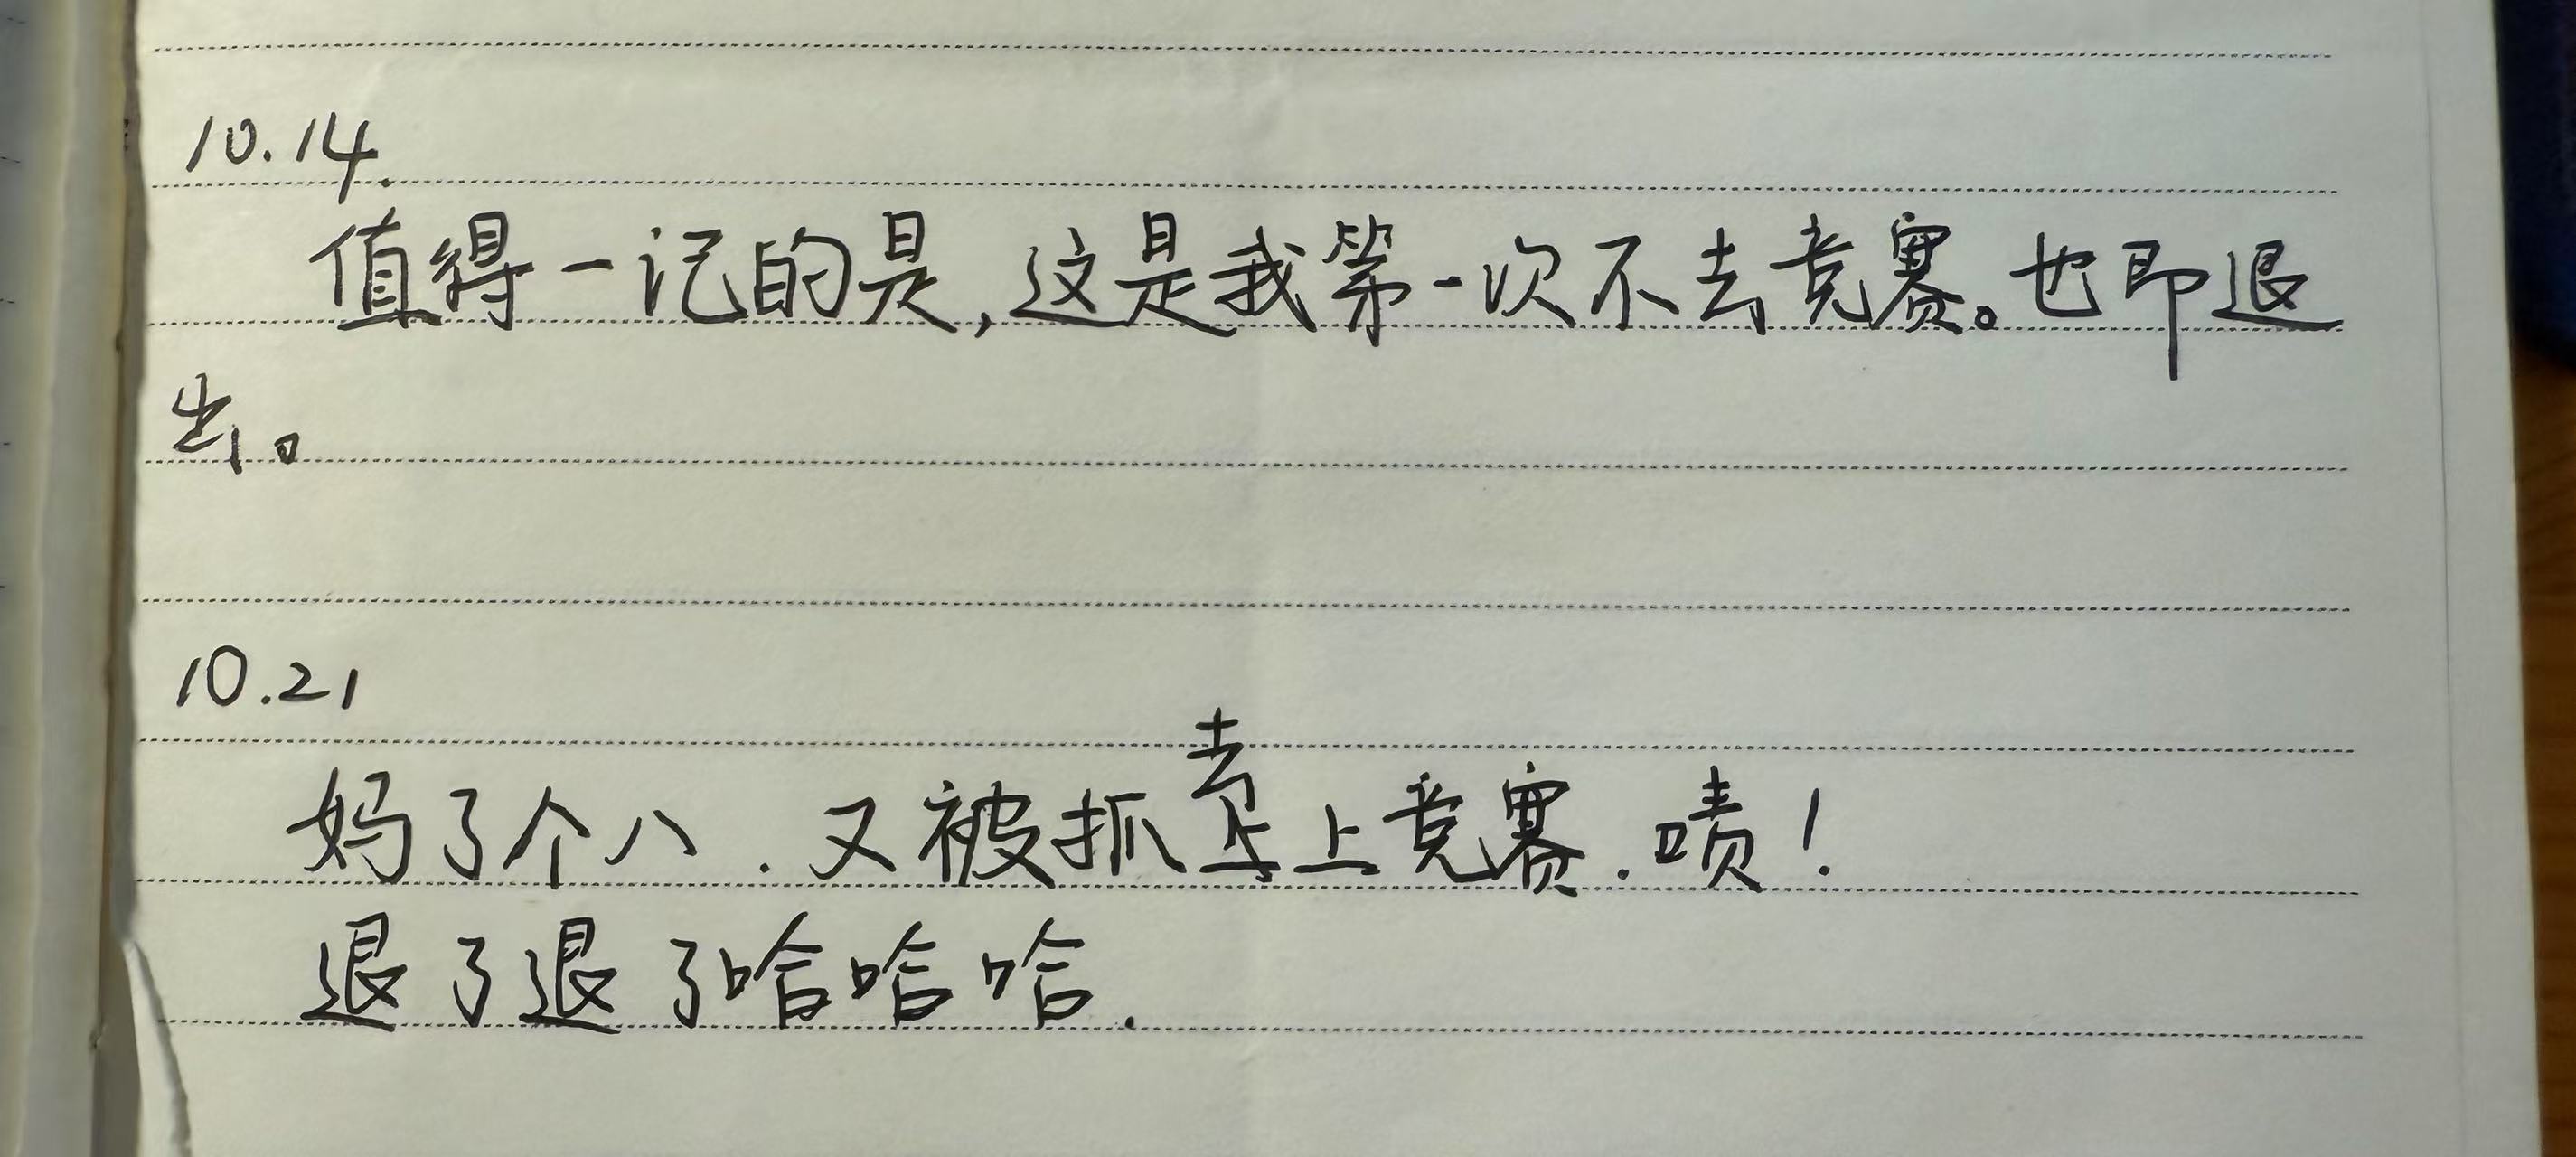 10.14.
值得一记的是,这是我第一次不去竞赛。也即退
出。
10.21
妈了个八.又被抓去上竞赛.啧!
退了退了哈哈哈.